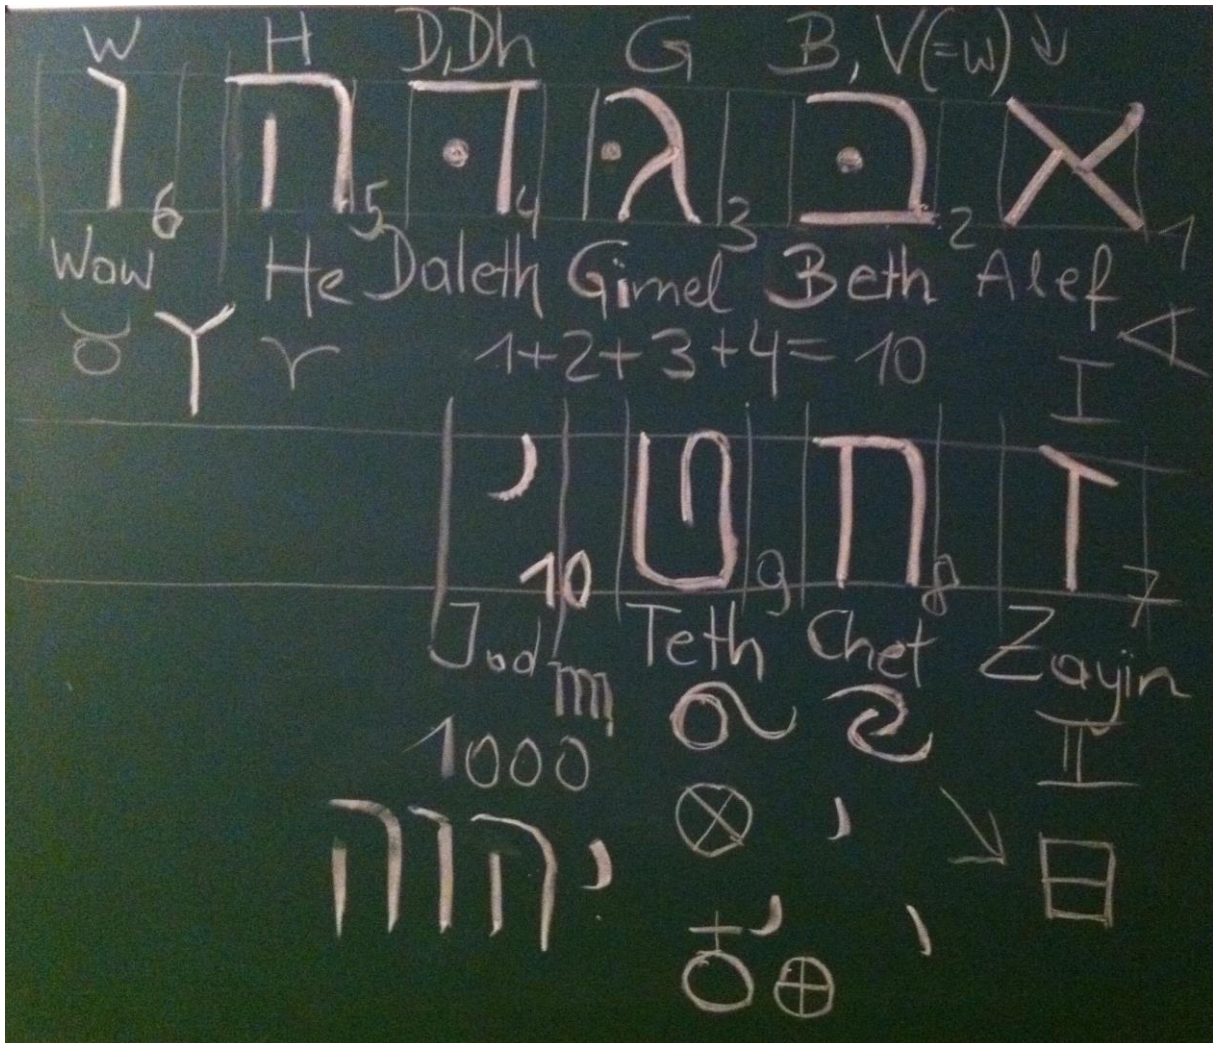 W H D,Dh G B, V(=w) ↓
ו 6 ה 5 דּ 4 גּ 3 בּ 2 א 1
Waw He Daleth Gimel Beth Alef
♉ Y ♈ 1+2+3+4=10 I ∀
י 10 ט 9 ח 8 ז 7
Jod Teth Chet Zayin
♍ ♌ ♋ ♊
1000
⊗ י ↘ 日
יהוה
♁ י ⊕ י